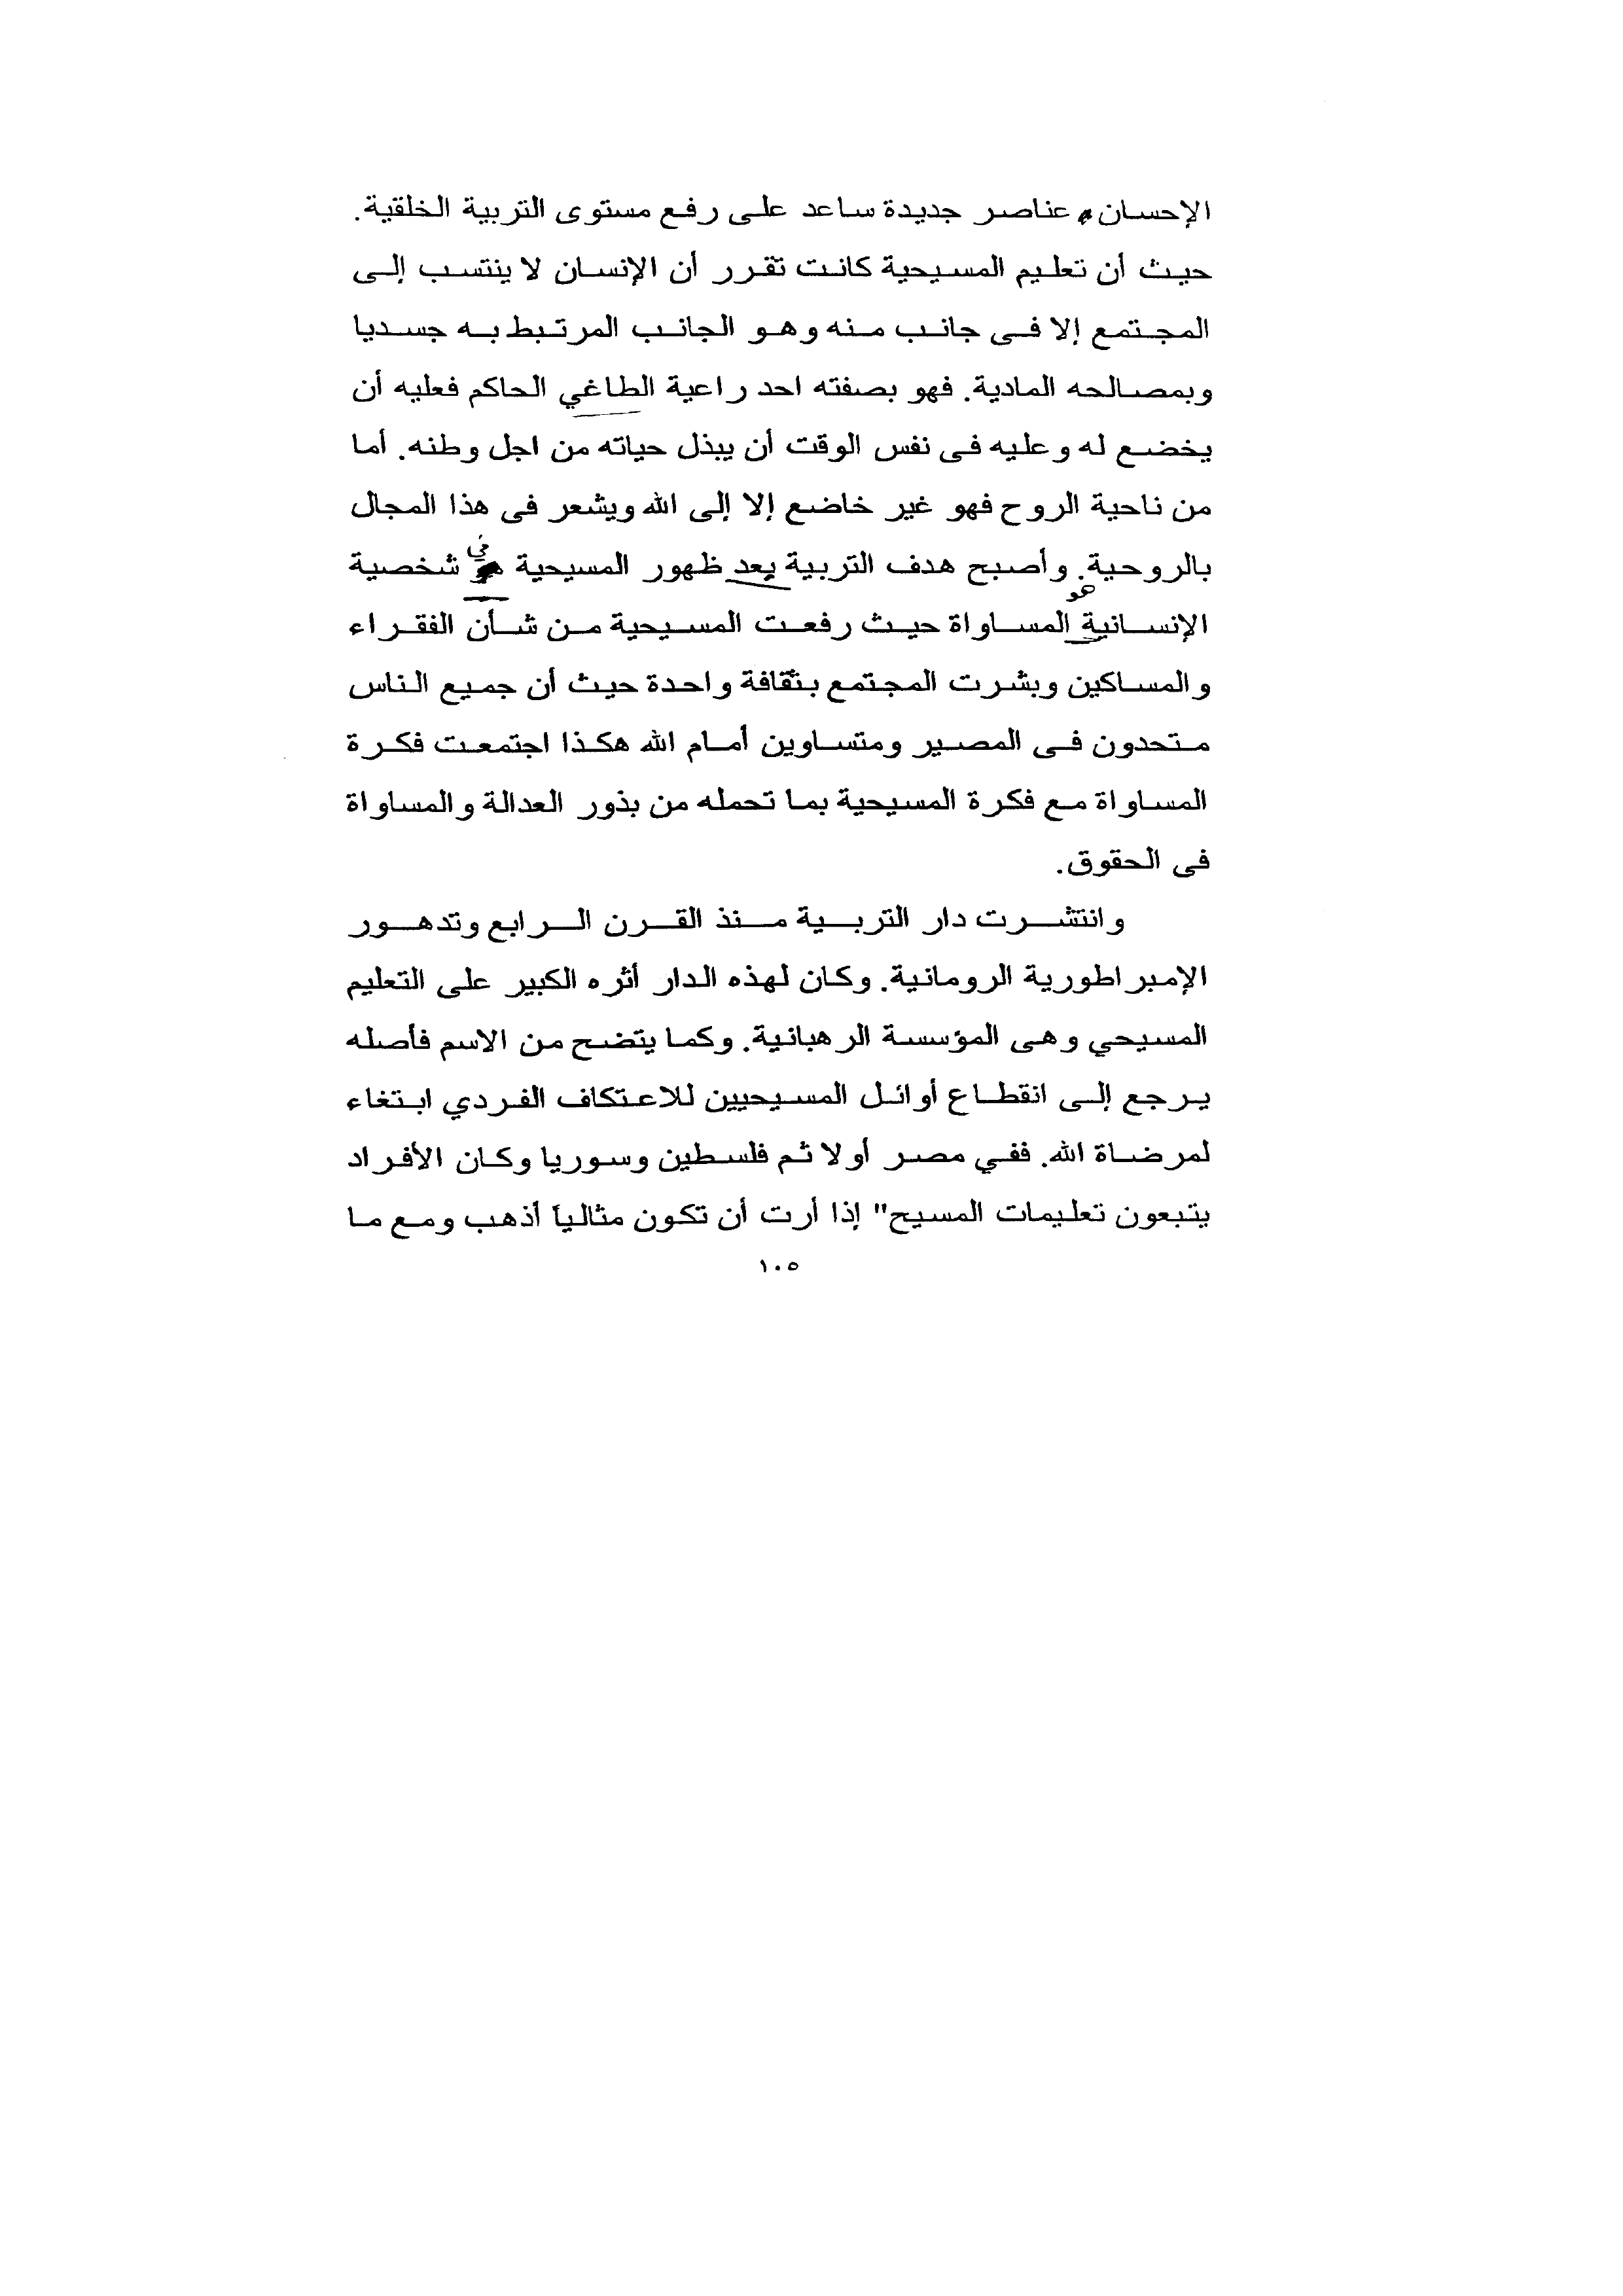 الإحسان عناصر جديدة ساعد على رفع مستوى التربية الخلقية.
حيث أن تعليم المسيحية كانت تقرر أن الإنسان لا ينتسب إلى
المجتمع إلا فى جانب منه وهو الجانب المرتبط به جسديا
وبمصالحه المادية. فهو بصفته احد راعية الطاغي الحاكم فعليه أن
يخضع له وعليه فى نفس الوقت أن يبذل حياته من اجل وطنه. أما
من ناحية الروح فهو غير خاضع إلا إلى الله ويشعر فى هذا المجال
بالروحية. وأصبح هدف التربية بعد ظهور المسيحية في شخصية
هو
الإنسانية المساواة حيث رفعت المسيحية من شأن الفقراء
والمساكين وبشرت المجتمع بثقافة واحدة حيث أن جميع الناس
متحدون فى المصير ومتساوين أمام الله هكذا اجتمعت فكرة
المساواة مع فكرة المسيحية بما تحمله من بذور العدالة والمساواة
فى الحقوق.
وانتشرت دار التربية منذ القرن الرابع وتدهور
الإمبراطورية الرومانية. وكان لهذه الدار أثره الكبير على التعليم
المسيحي وهى المؤسسة الرهبانية. وكما يتضح من الاسم فأصله
يرجع إلى انقطاع أوائل المسيحيين للاعتكاف الفردي ابتغاء
لمرضاة الله. ففي مصر أولا ثم فلسطين وسوريا وكان الأفراد
يتبعون تعليمات المسيح" إذا أرت أن تكون مثالياً أذهب ومع ما
١٠٥